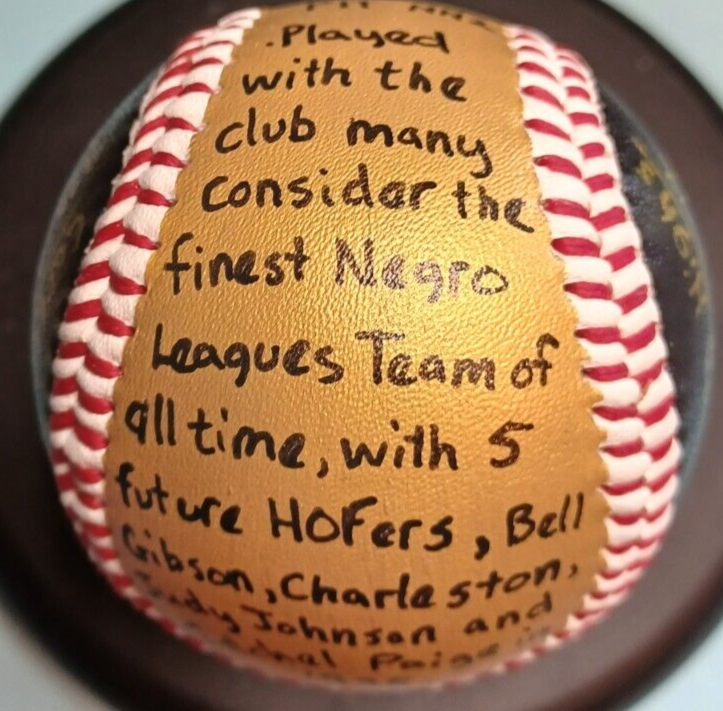 .Played
with the
club many
consider the
finest Negro
Leagues Team of
all time, with 5
future HOFers, Bell
Gibson, Charleston,
Judy Johnson and
Paige